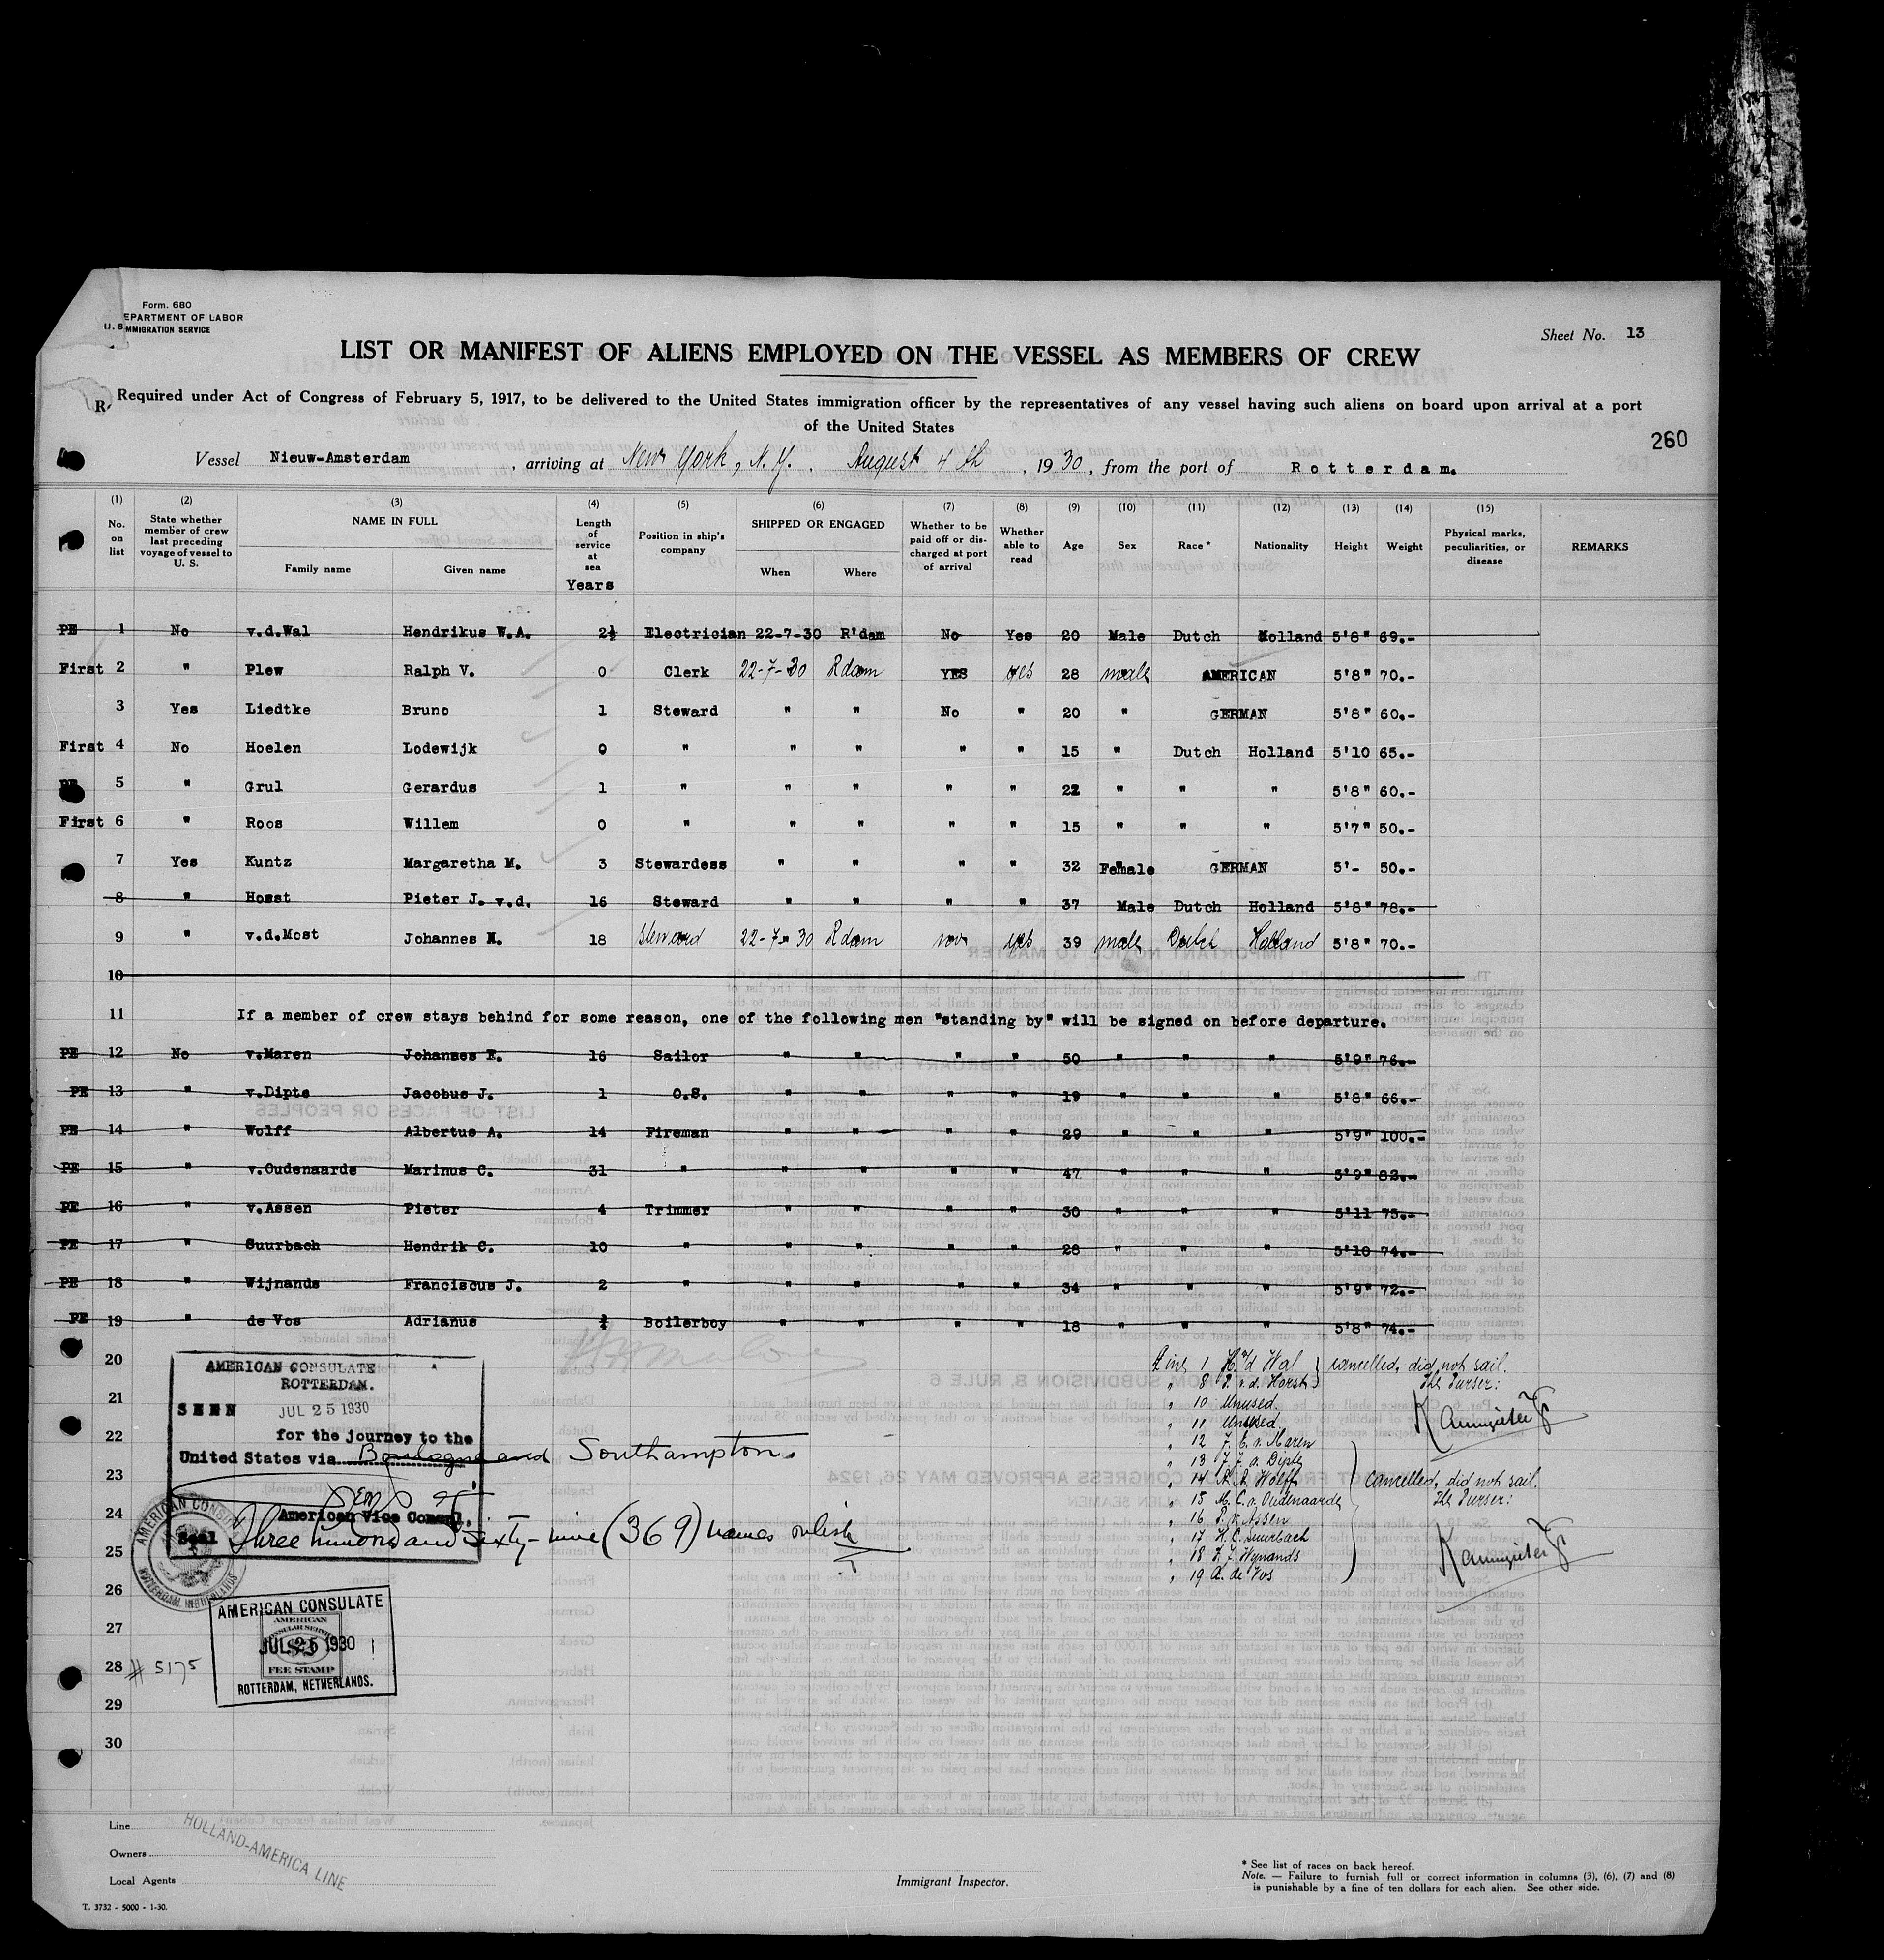 Form. 680
EPARTMENT OF LABOR
U. S. MMIGRATION SERVICE
Sheet No. 13
LIST OR MANIFEST OF ALIENS EMPLOYED ON THE VESSEL AS MEMBERS OF CREW
R. Required under Act of Congress of February 5, 1917, to be delivered to the United States immigration officer by the representatives of any vessel having such aliens on board upon arrival at a port
of the United States
260
Vessel Nieuw-Amsterdam, arriving at New York, N.Y., August 4 th, 1930, from the port of Rotterdam.
(1) No. on list
(2) State whether member of crew last preceding voyage of vessel to U. S.
(3) NAME IN FULL
Family name Given name
(4) Length of service at sea Years
(5) Position in ship's company
(6) SHIPPED OR ENGAGED
When Where
(7) Whether to be paid off or discharged at port of arrival
(8) Whether able to read
(9) Age
(10) Sex
(11) Race*
(12) Nationality
(13) Height
(14) Weight
(15) Physical marks, peculiarities, or disease
REMARKS
PE 1 No v.d.Wal Hendrikus W.A. 2½ Electrician 22-7-30 R'dam No Yes 20 Male Dutch Holland 5'8" 69.-
First 2 " Plew Ralph V. 0 Clerk 22-7-30 Rdam YES yes 28 male AMERICAN 5'8" 70.-
3 Yes Liedtke Bruno 1 Steward " " No " 20 " GERMAN 5'8" 60.-
First 4 No Hoelen Lodewijk 0 " " " " " 15 " Dutch Holland 5'10 65.-
PE 5 " Grul Gerardus 1 " " " " " 22 " " " 5'8" 60.-
First 6 " Roos Willem 0 " " " " " 15 " " " 5'7" 50.-
7 Yes Kuntz Margaretha M. 3 Stewardess " " " " 32 Female GERMAN 5'- 50.-
8 " Horst Pieter J. v.d. 16 Steward " " " " 37 Male Dutch Holland 5'8" 78.-
9 " v.d.Most Johannes N. 18 Steward 22-7-30 Rdam yes 39 male Dutch Holland 5'8" 70.-
10
11 If a member of crew stays behind for some reason, one of the following men "standing by" will be signed on before departure.
PE 12 No v.Maren Johannes E. 16 Sailor " " " " 50 " " " 5'9" 76.-
PE 13 " v.Dipte Jacobus J. 1 O.S. " " " " 19 " " " 5'8" 66.-
PE 14 " Wolff Albertus A. 14 Fireman " " " " 29 " " " 5'9" 100.-
PE 15 " v.Oudenaarde Marinus C. 31 " " " " " 47 " " " 5'9" 82.-
PE 16 " v.Assen Pieter 4 Trimmer " " " " 30 " " " 5'11 75.-
PE 17 " Suurbach Hendrik C. 10 " " " " " 28 " " " 5'10 74.-
PE 18 " Wijnands Franciscus J. 2 " " " " " 34 " " " 5'9" 72.-
PE 19 " de Vos Adrianus Boilerboy " " " " 18 " " " 5'8" 74.-
20
21
22
23
24
25
26
27
28
29
30
AMERICAN CONSULATE
ROTTERDAM.
SEEN JUL 25 1930
for the journey to the
United States via Boulogne and Southampton.
American Vice Consul.
Seal Three hundred and sixty-nine (369) names on list
AMERICAN CONSULATE
AMERICAN
CONSULAR SERVICE
JUL 25 1930
FEE STAMP
ROTTERDAM, NETHERLANDS.
# 5175
Line 1 H. v/d Wal
" 8 P. v. d. Horst
cancelled, did not sail.
The Purser:
" 10 Unused.
" 11 Unused
" 12 J. E. v. Maren
" 13 J. J. v. Dipte
" 14 A. A. Wolff
" 15 M. C. v. Oudenaarde
" 16 P. v. Assen
" 17 H. C. Suurbach
" 18 F. J. Wynands
" 19 A. de Vos
cancelled, did not sail.
The Purser:
Line
Owners
Local Agents
HOLLAND-AMERICA LINE
Immigrant Inspector.
* See list of races on back hereof.
Note. — Failure to furnish full or correct information in columns (3), (6), (7) and (8)
is punishable by a fine of ten dollars for each alien. See other side.
T. 3732 - 5000 - 1-30.